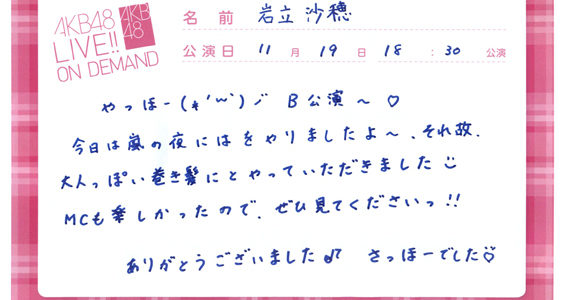 AKB48
LIVE!!
ON DEMAND
AKB
48
名前 岩立沙穂
公演日 11月19日 18:30 公演
やっほー(*'︶'*)ノ B公演〜♡
今日は嵐の夜にはをやりましたよ〜、それ故、
大人っぽい巻き髪にとやっていただきました
MCも楽しかったので、ぜひ見てくださいっ!!
ありがとうございました♪ さっほーでした♡